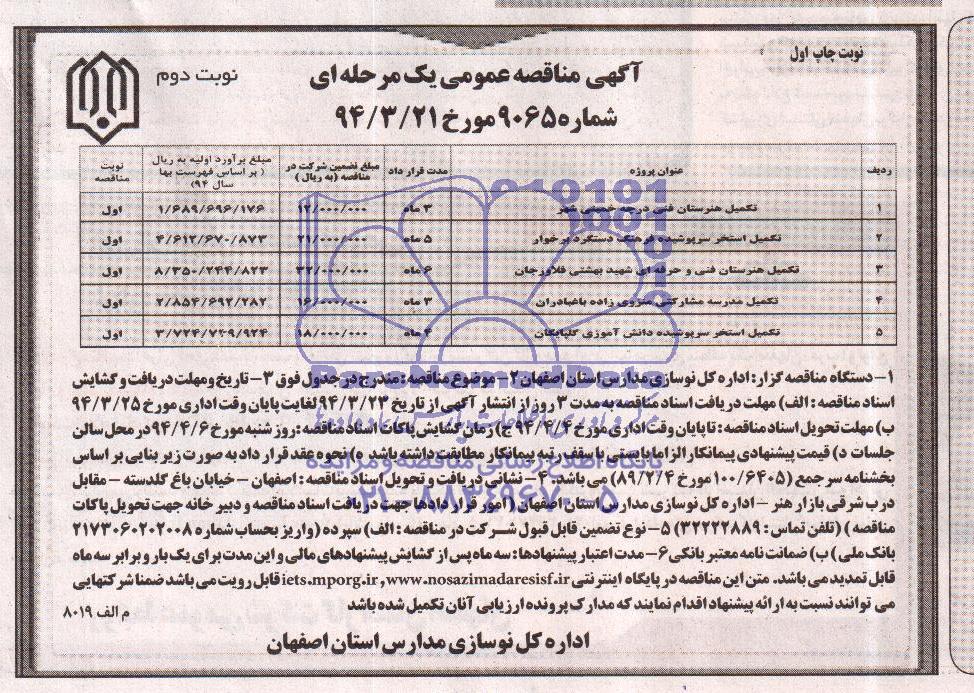 نوبت چاپ اول
نوبت دوم
آگهی مناقصه عمومی یک مرحله ای
شماره ۹۰۶۵ مورخ ۹۴/۳/۲۱
ردیف عنوان پروژه مدت قرار داد مبلغ تضمین شرکت در مناقصه (به ریال) مبلغ برآورد اولیه به ریال (بر اساس فهرست بها سال ۹۴) نوبت مناقصه
۱ تکمیل هنرستان فنی درچه خمینی شهر ۳ ماه ۱۲/۰۰۰/۰۰۰ ۱/۶۸۹/۶۹۶/۱۷۶ اول
۲ تکمیل استخر سرپوشیده فرهنگ دستگرد برخوار ۵ ماه ۲۱/۰۰۰/۰۰۰ ۴/۶۱۲/۶۷۰/۸۷۳ اول
۳ تکمیل هنرستان فنی و حرفه ای شهید بهشتی فلاورجان ۶ ماه ۳۲/۰۰۰/۰۰۰ ۸/۳۵۰/۲۴۴/۸۲۳ اول
۴ تکمیل مدرسه مشارکتی زاده باغبادران ۳ ماه ۱۶/۰۰۰/۰۰۰ ۲/۸۵۴/۶۹۲/۲۸۲ اول
۵ تکمیل استخر سرپوشیده دانش آموزی گلپایگان ۴ ماه ۱۸/۰۰۰/۰۰۰ ۳/۷۲۴/۷۴۹/۹۲۴ اول
ParsNamadData
۱- دستگاه مناقصه گزار: اداره کل نوسازی مدارس استان اصفهان ۲- موضوع مناقصه: مندرج در جدول فوق ۳- تاریخ و مهلت دریافت و گشایش
اسناد مناقصه: الف) مهلت دریافت اسناد مناقصه به مدت ۳ روز از انتشار آگهی از تاریخ ۹۴/۳/۲۳ لغایت پایان وقت اداری مورخ ۹۴/۳/۲۵
ب) مهلت تحویل اسناد مناقصه: تا پایان وقت اداری مورخ ۹۴/۴/۴ ج) زمان گشایش پاکات اسناد مناقصه: روز شنبه مورخ ۹۴/۴/۶ در محل سالن
جلسات د) قیمت پیشنهادی پیمانکار الزاما بایستی با سقف رتبه پیمانکار مطابقت داشته باشد ه) نحوه عقد قرار داد به صورت زیر بنایی بر اساس
پایگاه اطلاع رسانی مناقصه و مزایده
بخشنامه سرجمع (۱۰۰/۶۴۰۵ مورخ ۸۹/۲/۴) می باشد. ۴- نشانی دریافت و تحویل اسناد مناقصه: اصفهان - خیابان باغ گلدسته - مقابل
۰۲۱-۸۸۳۴۹۶۷۰-۵
درب شرقی بازار هنر - اداره کل نوسازی مدارس استان اصفهان (امور قرار دادها جهت دریافت اسناد مناقصه و دبیر خانه جهت تحویل پاکات
مناقصه) (تلفن تماس: ۳۲۲۲۲۸۸۹) ۵- نوع تضمین قابل قبول شرکت در مناقصه: الف) سپرده (واریز بحساب شماره ۲۱۷۳۰۶۰۲۰۲۰۰۸
بانک ملی) ب) ضمانت نامه معتبر بانکی ۶- مدت اعتبار پیشنهادها: سه ماه پس از گشایش پیشنهادهای مالی و این مدت برای یک بار و برابر سه ماه
قابل تمدید می باشد. متن این مناقصه در پایگاه اینترنتی iets.mporg.ir, www.nosazimadaresisf.ir قابل رویت می باشد ضمنا شرکتهایی
می توانند نسبت به ارائه پیشنهاد اقدام نمایند که مدارک پرونده ارزیابی آنان تکمیل شده باشد
م الف ۸۰۱۹
اداره کل نوسازی مدارس استان اصفهان